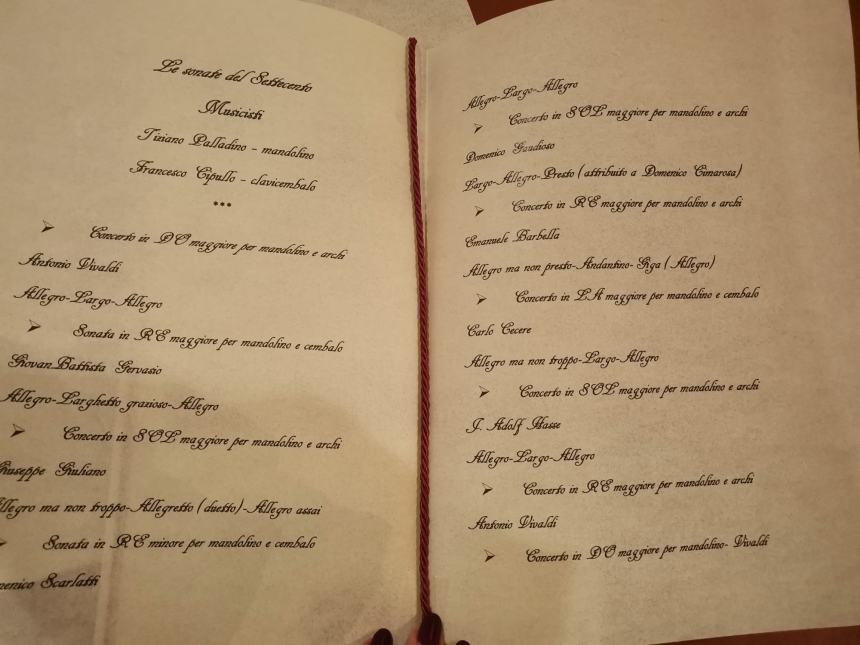 Le sonate del Settecento
Musicisti
Tiziano Palladino - mandolino
Francesco Cipullo - clavicembalo
***
➢ Concerto in DO maggiore per mandolino e archi
Antonio Vivaldi
Allegro-Largo-Allegro
➢ Sonata in RE maggiore per mandolino e cembalo
Giovan Battista Gervasio
Allegro-Larghetto grazioso-Allegro
➢ Concerto in SOL maggiore per mandolino e archi
Giuseppe Giuliano
Allegro ma non troppo-Allegretto (duetto)-Allegro assai
➢ Sonata in RE minore per mandolino e cembalo
menico Scarlatti
Allegro-Largo-Allegro
➢ Concerto in SOL maggiore per mandolino e archi
Domenico Gaudioso
Largo-Allegro-Presto (attribuito a Domenico Cimarosa)
➢ Concerto in RE maggiore per mandolino e archi
Emanuele Barbella
Allegro ma non presto-Andantino-Giga (Allegro)
➢ Concerto in LA maggiore per mandolino e cembalo
Carlo Cecere
Allegro ma non troppo-Largo-Allegro
➢ Concerto in SOL maggiore per mandolino e archi
J. Adolf Hasse
Allegro-Largo-Allegro
➢ Concerto in RE maggiore per mandolino e archi
Antonio Vivaldi
➢ Concerto in DO maggiore per mandolino- Vivaldi